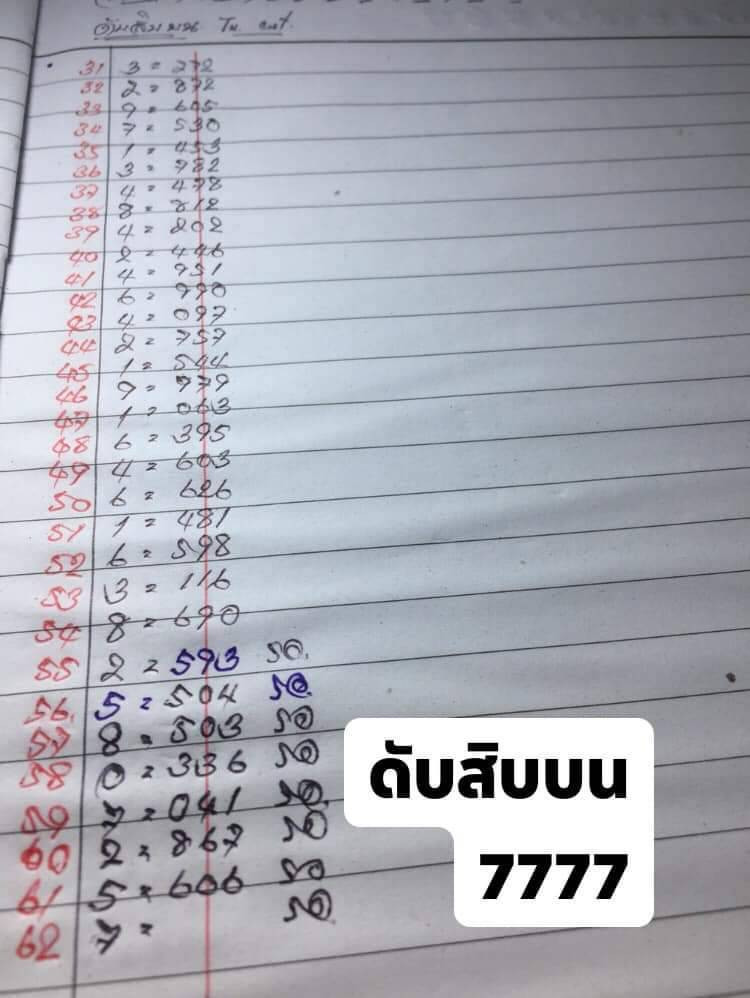 ดับสิบบน
31 3 = 272
32 2 = 872
33 9 = 605
34 7 = 530
35 1 = 453
36 3 = 782
37 4 = 478
38 8 = 812
39 4 = 202
40 2 = 446
41 4 = 951
42 6 = 990
43 4 = 097
44 2 = 757
45 1 = 544
46 9 = 779
47 1 = 063
48 6 = 395
49 4 = 603
50 6 = 626
51 1 = 481
52 6 = 598
53 3 = 116
54 8 = 690
55 2 = 593
56 5 = 504
57 8 = 503
58 0 = 336
59 7 = 041
60 2 = 867
61 5 = 606
62 7 =
ดับสิบบน
7777